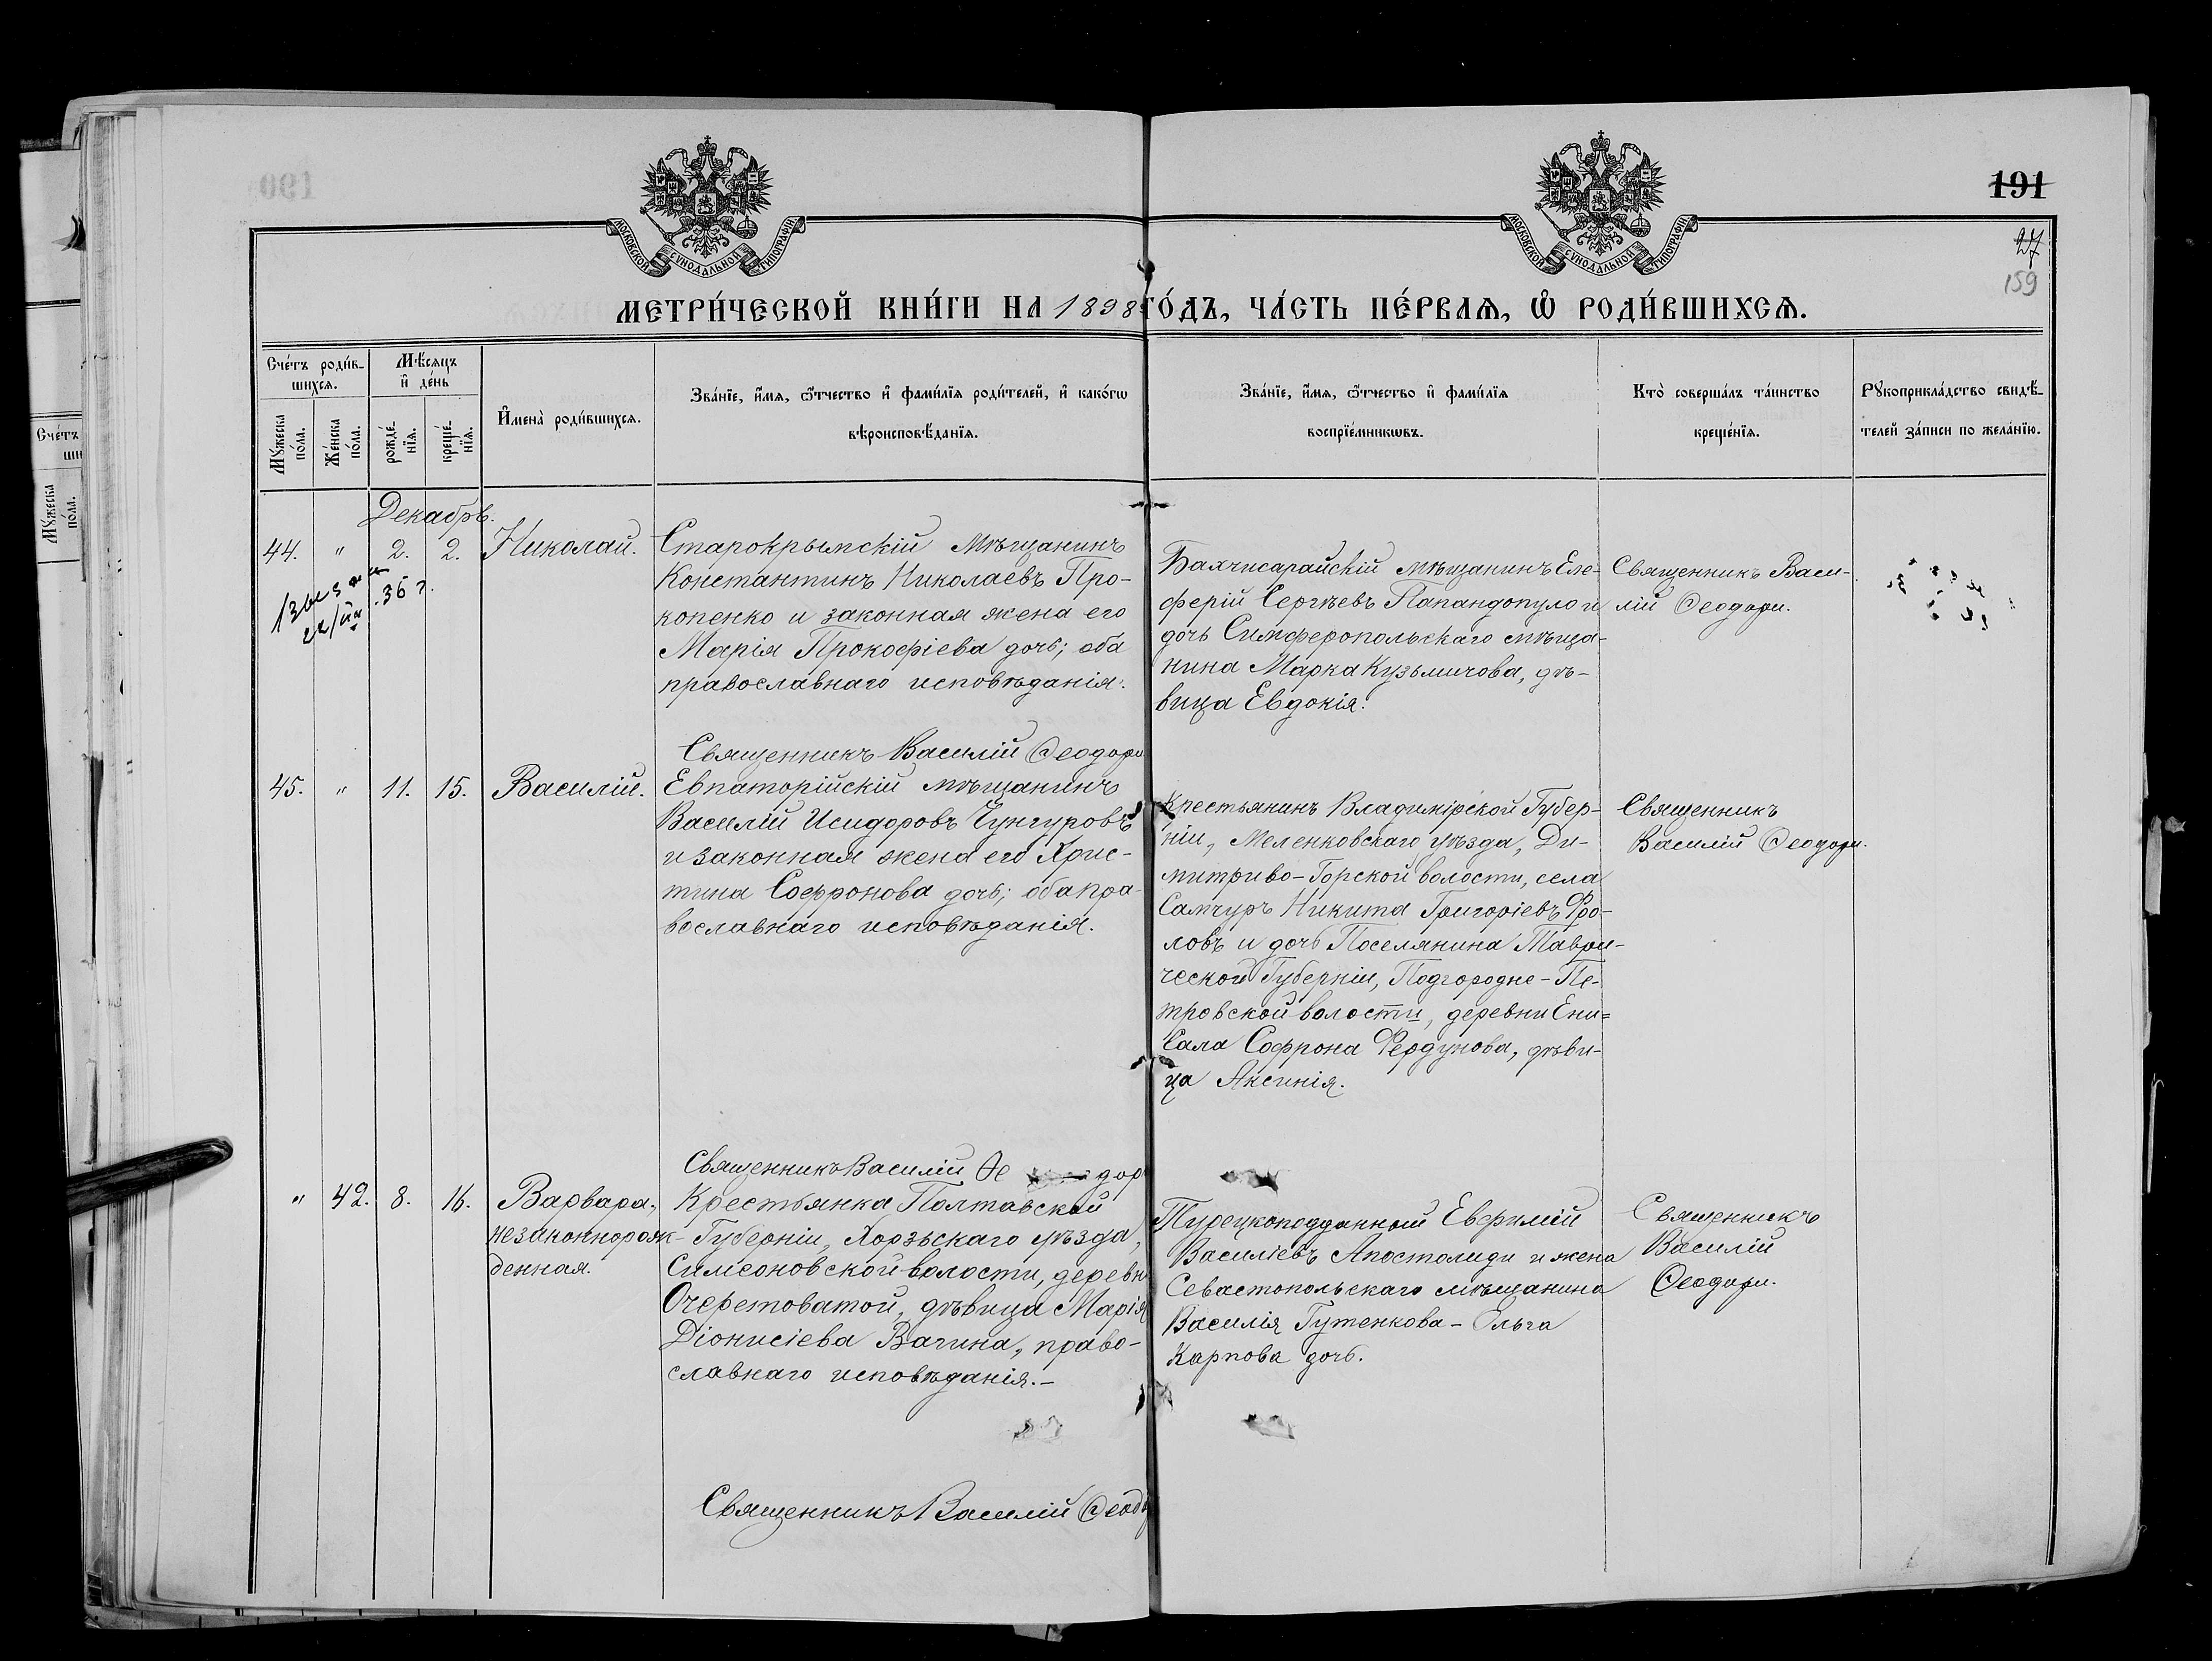 191
27
159
МОСКОВСКОЙ СѴНОДАЛЬНОЙ ТИПОГРАФІИ
МОСКОВСКОЙ СѴНОДАЛЬНОЙ ТИПОГРАФІИ
МЕТРИ́ЧЕСКОЙ КНИ́ГИ НА 1898 ГО́ДЪ, ЧА́СТЬ ПЕ́РВАѦ, Ѡ҆ РОДИ́ВШИХСѦ.
Сче́тъ роди́в-
шихсѧ.
Мѣ́сѧцъ
и҆ де́нь
Мꙋ́жеска
по́ла.
Же́нска
по́ла.
рожде́-
нїѧ.
креще́-
нїѧ.
И҆мена̀ роди́вшихсѧ.
Зва́нїе, и҆́мѧ, ѻ҆́тчество и҆ фами́лїѧ роди́телей, и҆ како́гѡ
вѣроисповѣ́данїѧ.
Зва́нїе, и҆́мѧ, ѻ҆́тчество и҆ фами́лїѧ
воспрїе́мникѡвъ.
Кто̀ соверша́лъ та́инство
креще́нїѧ.
Рꙋкоприкла́дство свидѣ́-
телей за́писи по жела́нїю.
Декабрь.
44. " 2. 2. Николай.
36 г.
Старокрымскій мѣщанинъ
Константинъ Николаевъ Про-
копенко и законная жена его
Марія Прокофіева дочь; оба
православнаго исповѣданія.
Бахчисарайскій мѣщанинъ Еле-
ферій Сергѣевъ Папандопуло и
дочь Симферопольскаго мѣща-
нина Марка Кузьмичова, дѣ-
вица Евдокія.
Священникъ Васи-
лій Ѳеодори.
Священникъ Василій Ѳеодори
45. " 11. 15. Василій.
Евпаторійскій мѣщанинъ
Василій Исидоровъ Чунгуровъ
и законная жена его Хрис-
тина Софронова дочь; оба пра-
вославнаго исповѣданія.
Крестьянинъ Владимірской Губер-
ніи, Меленковскаго уѣзда, Ди-
митриво-Горской волости, села
Самчуръ Никита Григоріевъ Фро-
ловъ и дочь Поселянина Таври-
ческой Губерніи, Подгородно-Пе-
тровской волости, деревни Ени-
Сала Софрона Фердунова, дѣви-
ца Аксинія.
Священникъ
Василій Ѳеодори.
Священникъ Василій Ѳе дор
" 42. 8. 16. Варвара,
незаконнорож-
денная.
Крестьянка Полтавской
Губерніи, Хорѣьскаго уѣзда,
Симеоновской волости, деревн
Очеретоватой, дѣвица Марія
Діонисіева Вагина, право-
славнаго исповѣданія.-
Турецкоподданный Евфимій
Василіевъ Апостолиди и жена
Севастопольскаго мѣщанина
Василія Гутенкова - Ольга
Карпова дочь.
Священникъ
Василій
Ѳеодори.
Священникъ Василій Ѳеодо
Сче́тъ
Мꙋ́жеска
по́ла.